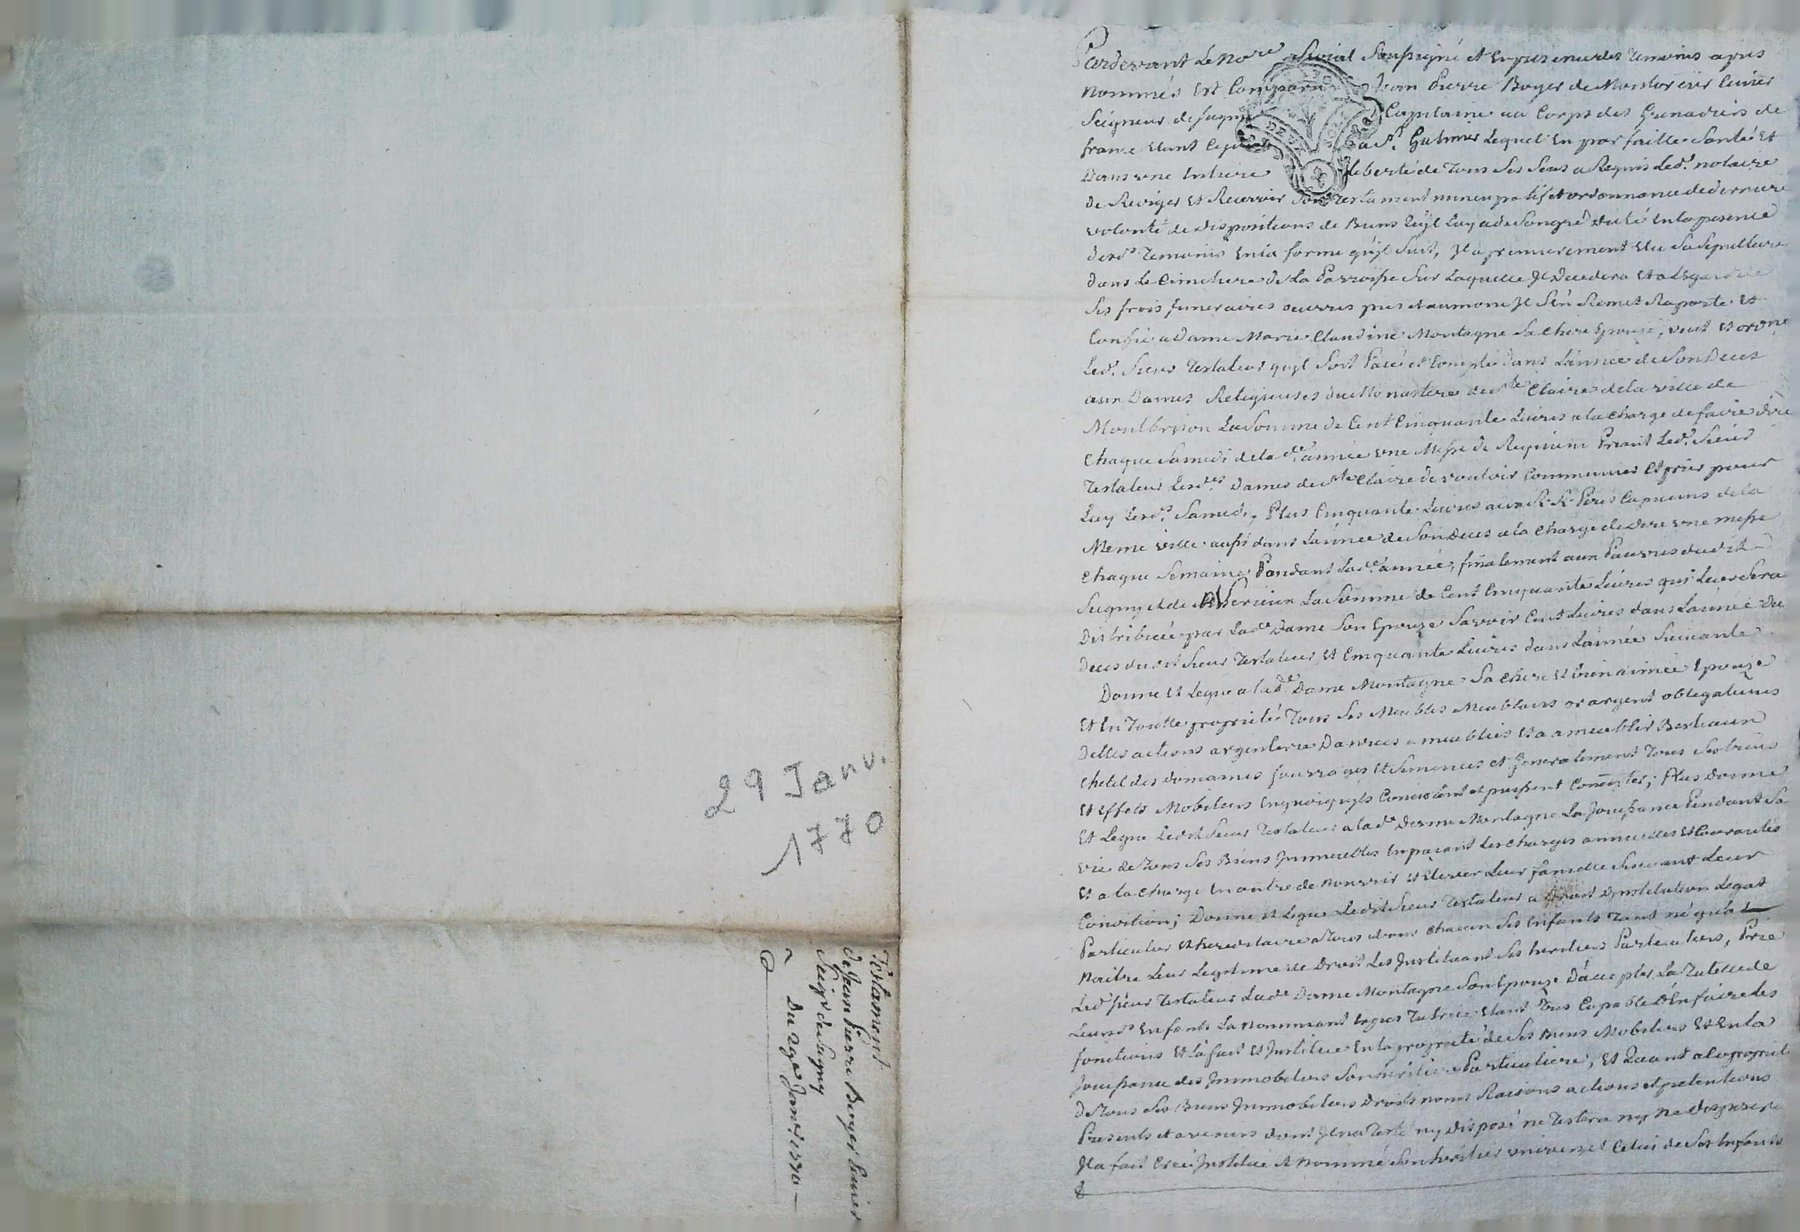 29 Janv.
1770
Testament
de Jean Pierre Boyer Ecuier
Seigr de Sugny
Du 29e Janvr 1770
Pardevant Le Nore Roial Soussigné et En presence des Temoins apres
Nommés Est Comparu Jean Pierre Boyer de Montorcier Ecuier
Seigneur de Sugny Capitaine au Corps des Grenadiers de
france Etant a St. Galmier Lequel En parfaitte Santé Et
Dans une Entiere Liberté de Tous Ses Sens a Requis Ledt. notaire
de Rediger Et Recevoir Son Testament nuncupatif et ordonnance de derniere
volonté de dispositions de Biens qu'jl Luy a de Son gré dicté En la presence
desdt. Temoins En la forme qu'jl Suit, Jl a premierement Elu Sa Sepulture
dans Le Cimetiere de La Parroisse Sur Laquelle Jl Decedera Et a L'Egard de
Ses frois funeraires oeuvres pies et aumone Jl S'en Remet Raporte Et
Confie a Dame Marie Claudine Montagne Sa Chere Epouse, veut Et ordne
Ledt. Sieur Testateur qu'jl Soit Païé et Compté Dans L'année de Son Deces
aux Dames Religieuses du Monastere de Ste Claire de la ville de
Montbrison La Somme de Cent Cinquante Livres a la charge de faire dire
Chaque Samedi de lade année une Messe de Requiem Priant Ledt. Sieur
Testateur Lesdtes Dames de Ste Claire de vouloir Communier Et prier pour
Luy Lesdt. Samedi, Plus Cinquante Livres aux R. R. Peres Capucins de la
Meme ville aussi dans L'année de Son Deces a la Charge de dire une messe
Chaque Semaine Pendant Lade. année, finalement aux Pauvres dudit
Sugny et de La Somme de Cent Cinquante Livres qui Leur Sera
Distribuée par Lade. Dame Son Epouze Savoir Cent Livres dans L'année du
Deces dudit Sieur Testateur Et Cinquante Livres dans L'année Suivante
Donne Et Legue a lade Dame Montagne Sa Chere Et bien aimée Epouze
Et En Toutte proprieté Tous Ses Meubles Meublans or argent obligations
Dettes actions argenterie Danrées ameublies Et a ameublir Bestiaux
Chetel des domaines fourrages Et Semences et Generalement Tous Ses biens
Et Effets Mobiliers En quoi qu'jls Consistent et puissent Consister; Plus Donne
Et Legue Ledit Sieur Testateur a lade Dame Montagne La Jouissance Pendant Sa
vie de Tous Ses Biens Jmmeubles En païant Les Charges annuelles Et Courantes
Et a la Charge En outre de Nourrir Et Elever Leur famille Suivant Leur
Condition; Donne Et Legue Ledit Sieur Testateur a Droit D'jnstitution Legat
Particulier Et hereditaire a Tous Et un Chacun Ses Enfants Tant né qu'a
Naitre Leur Legitime de Droit Les Jnstituant Ses heritiers Particuliers, Prie
Ledt Sieur Testateur Lade Dame Montagne Son Epouze D'accepter La Tutelle de
Leursdt Enfants La Nommant Tutrice Etant Tres Capable D'En faire Les
fonctions Et La fait Et Jnstitue En la proprieté de Ses Biens Mobiliers Et En la
Jouissance des Jmmobiliers Son heritiere Particuliere, Et Quant a la propriété
de Tous Ses Biens Jmmobiliers Droits noms Raisons actions et pretentions
Presents et avenirs dont Jl n'a Testé ny disposé ne Testera ny ne Disposera
Jl a fait Créé Jnstitué Et nommé Son heritier universel Celui de Ses Enfants